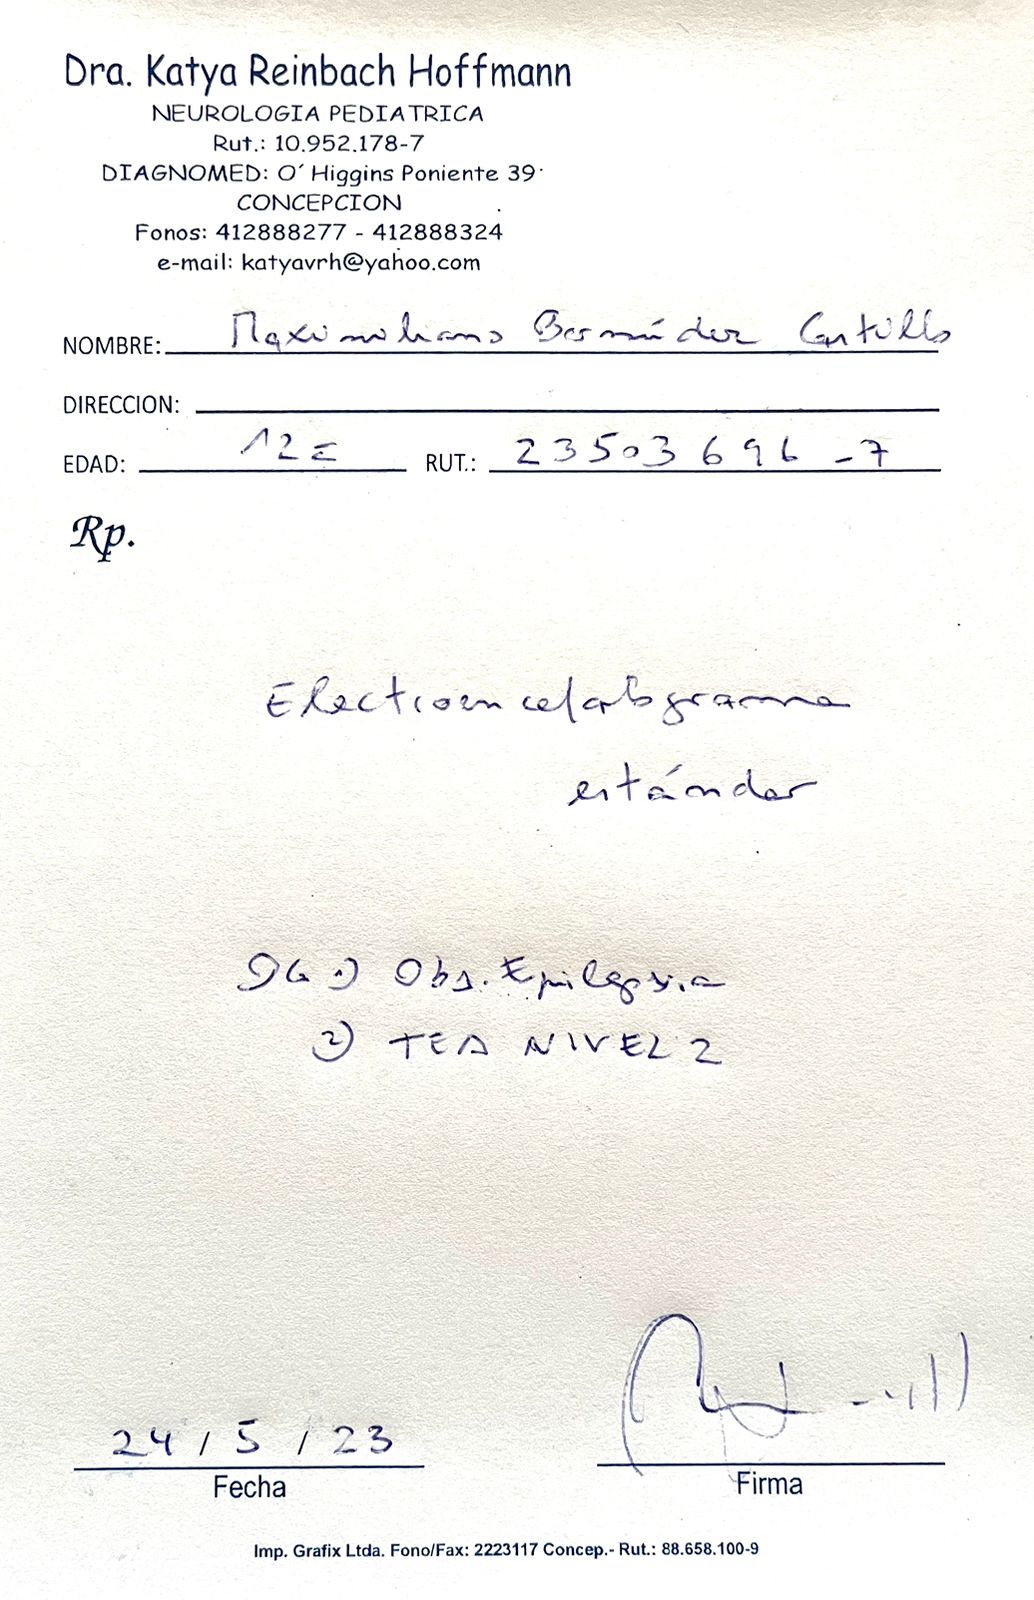 Dra. Katya Reinbach Hoffmann
NEUROLOGIA PEDIATRICA
Rut.: 10.952.178-7
DIAGNOMED: O´ Higgins Poniente 39
CONCEPCION
Fonos: 412888277 - 412888324
e-mail: katyavrh@yahoo.com
NOMBRE: Maximiliano Bermúdez Castillo
DIRECCION:
EDAD: 12 RUT.: 23503696-7
Rp.
Electroencefalograma
estándar
DG 1) Obs. Epilepsia
2) TEA NIVEL 2
24 / 5 / 23
Fecha Firma
Imp. Grafix Ltda. Fono/Fax: 2223117 Concep.- Rut.: 88.658.100-9